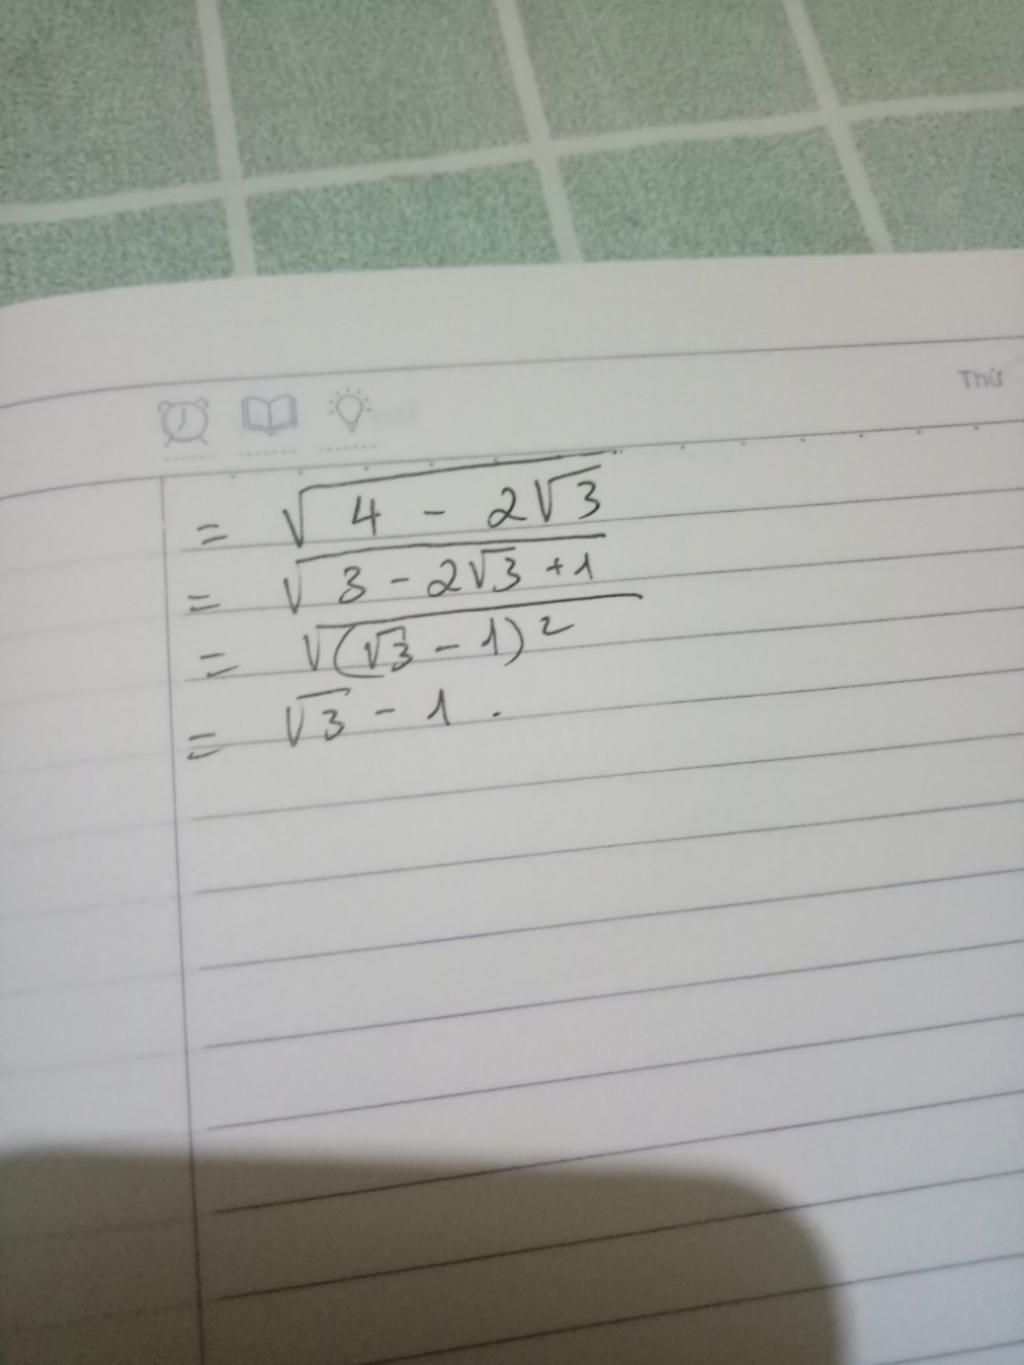 Thứ
= √(4 - 2√3)
= √(3 - 2√3 + 1)
= √((√3 - 1)²)
= √3 - 1 .